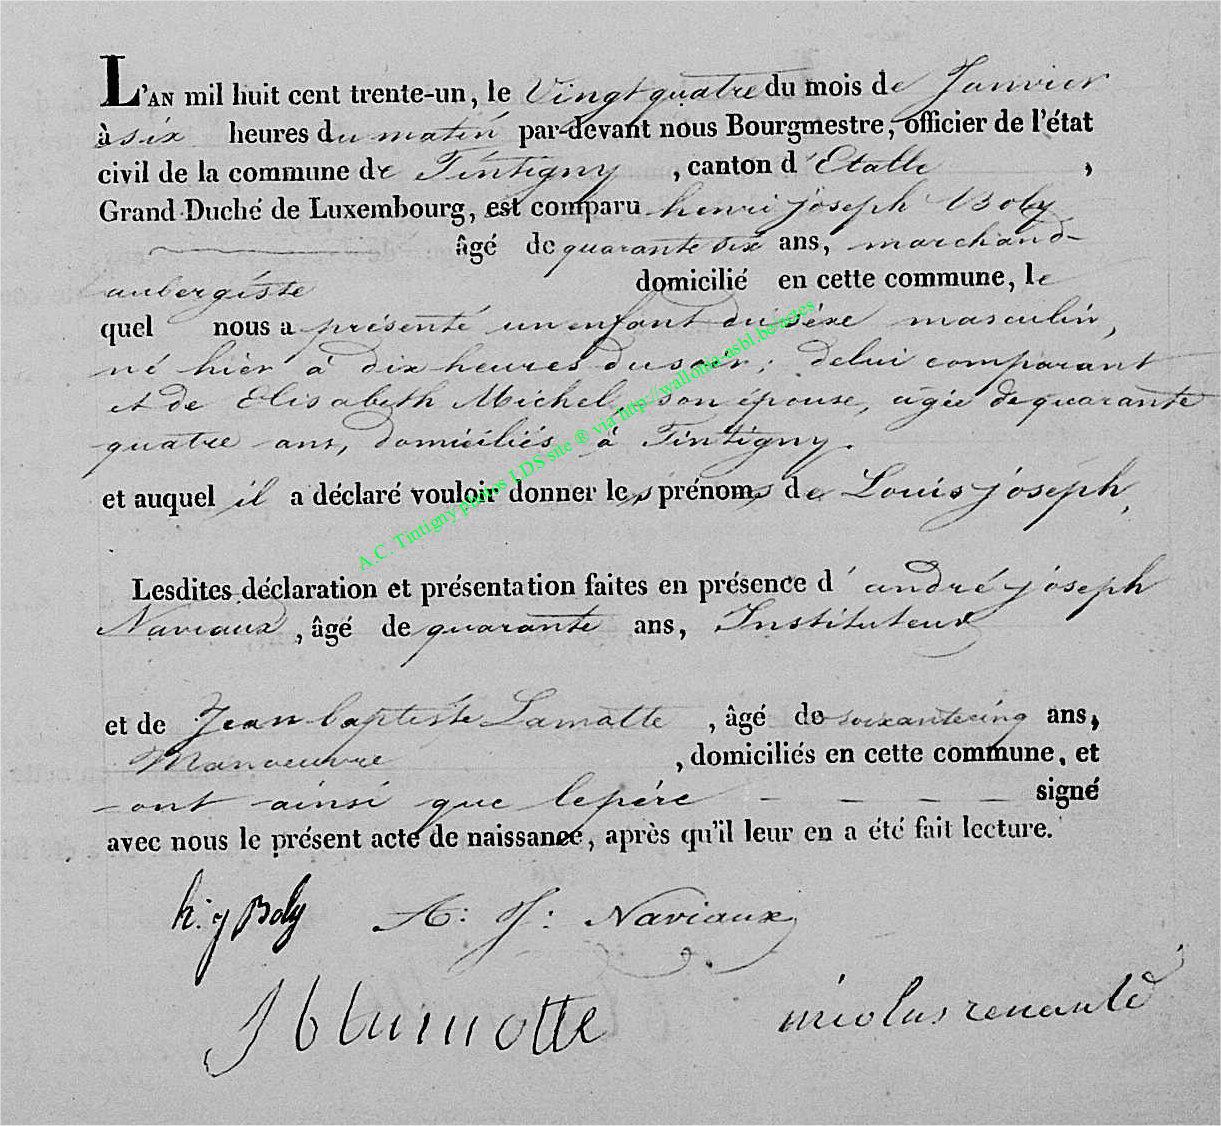 L'AN mil huit cent trente-un, le Vingt quatre du mois de Janvier
à six heures du matin par-devant nous Bourgmestre, officier de l'état
civil de la commune de Tintigny, canton d'Etalle,
Grand-Duché de Luxembourg, est comparu henri joseph Boly
âgé de quarante six ans, marchand-
aubergiste domicilié en cette commune, le
quel nous a présenté un enfant du séxe masculin,
né hier à dix heures du soir, de lui comparant
et de Elisabeth Michel, son épouse, agée de quarante
quatre ans, domiciliés à Tintigny.
et auquel il a déclaré vouloir donner les prénoms de Louis joseph,
Lesdites déclaration et présentation faites en présence d'andré joseph
Naviaux, âgé de quarante ans, Instituteur
et de Jean baptiste Lamotte, âgé de soixante cinq ans,
Manoeuvre, domiciliés en cette commune, et
ont ainsi que le père - - - - signé
avec nous le présent acte de naissance, après qu'il leur en a été fait lecture.
h: j Boly A: J: Naviaux
J b lamotte nicolas renauld
A.C. Tintigny photos LDS site ® via http://wallonia-asbl.be/actes